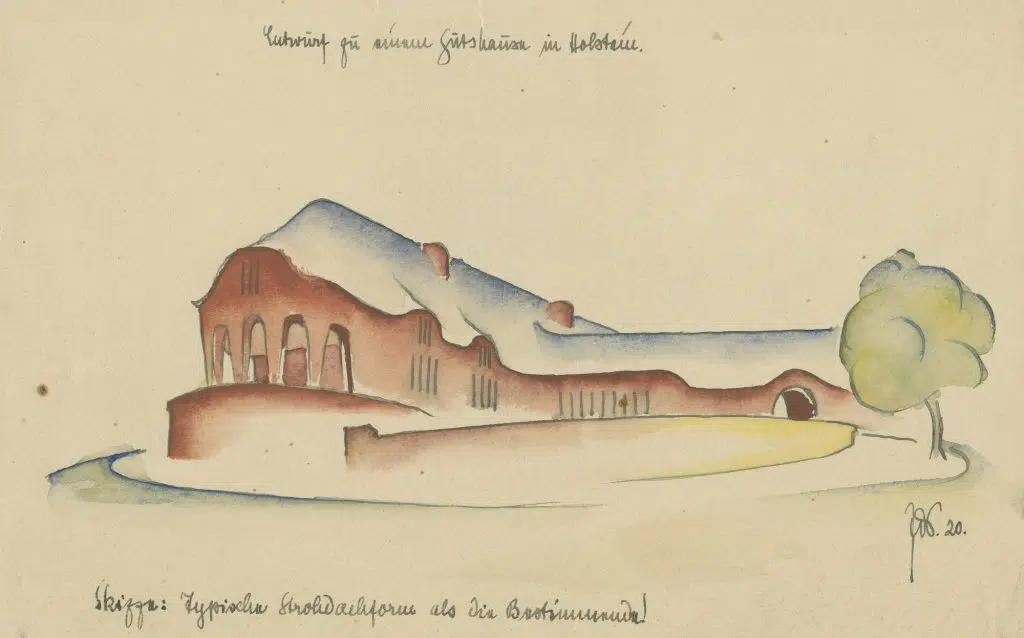 Entwurf zu einem Gutshause in Holstein.
20.
Skizze: Typische Strohdachform als die Bestimmende!